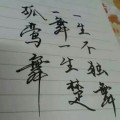 一生不独舞
一舞一生楚
孤鸾舞